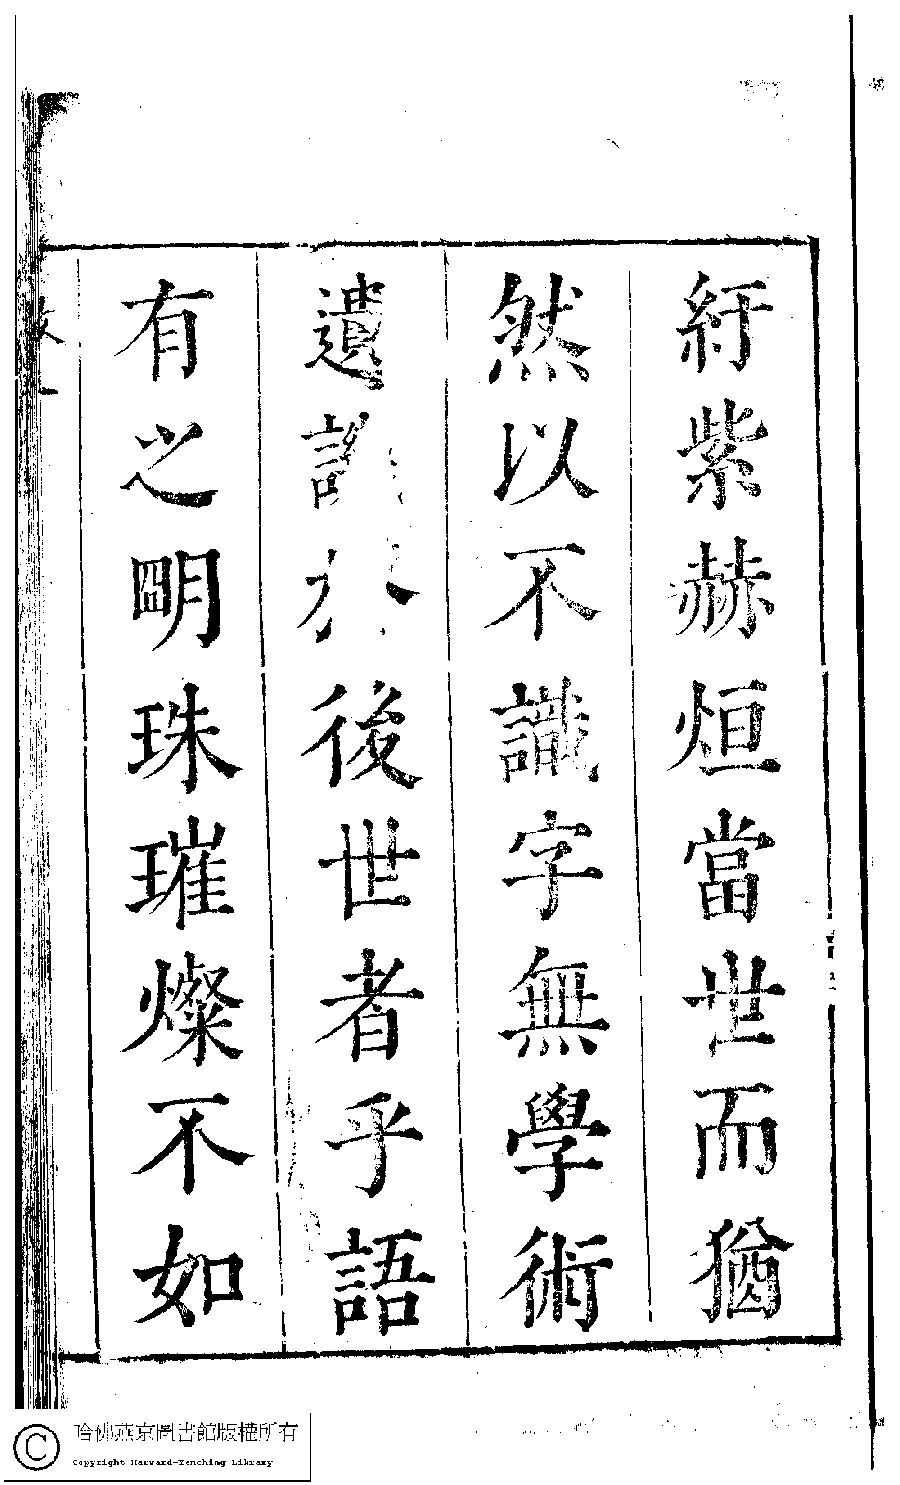 紆紫赫烜當世而猶
然以不識字無學術
遺譏於後世者乎語
有之明珠璀燦不如
哈佛燕京圖書館版權所有
Copyright Harvard-Yenching Library